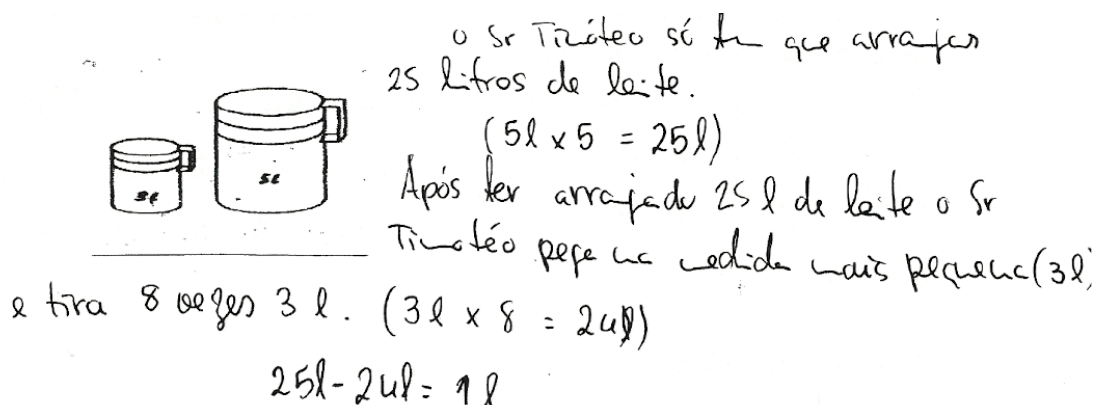 o Sr Timóteo só tem que arranjar
25 litros de leite.
(5l x 5 = 25l)
Após ter arranjado 25 l de leite o Sr
Timotéo pega na medida mais pequena (3l)
e tira 8 vezes 3 l. (3l x 8 = 24l)
25l - 24l = 1l
3l
5l